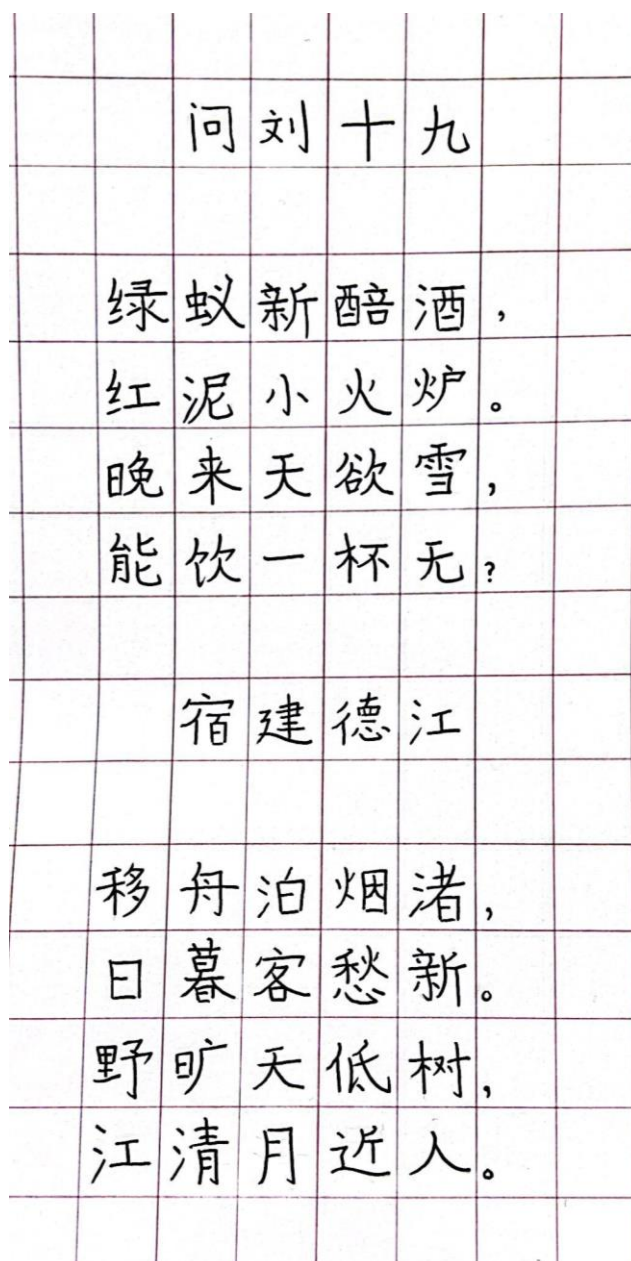 问刘十九
绿蚁新醅酒，
红泥小火炉。
晚来天欲雪，
能饮一杯无？
宿建德江
移舟泊烟渚，
日暮客愁新。
野旷天低树，
江清月近人。